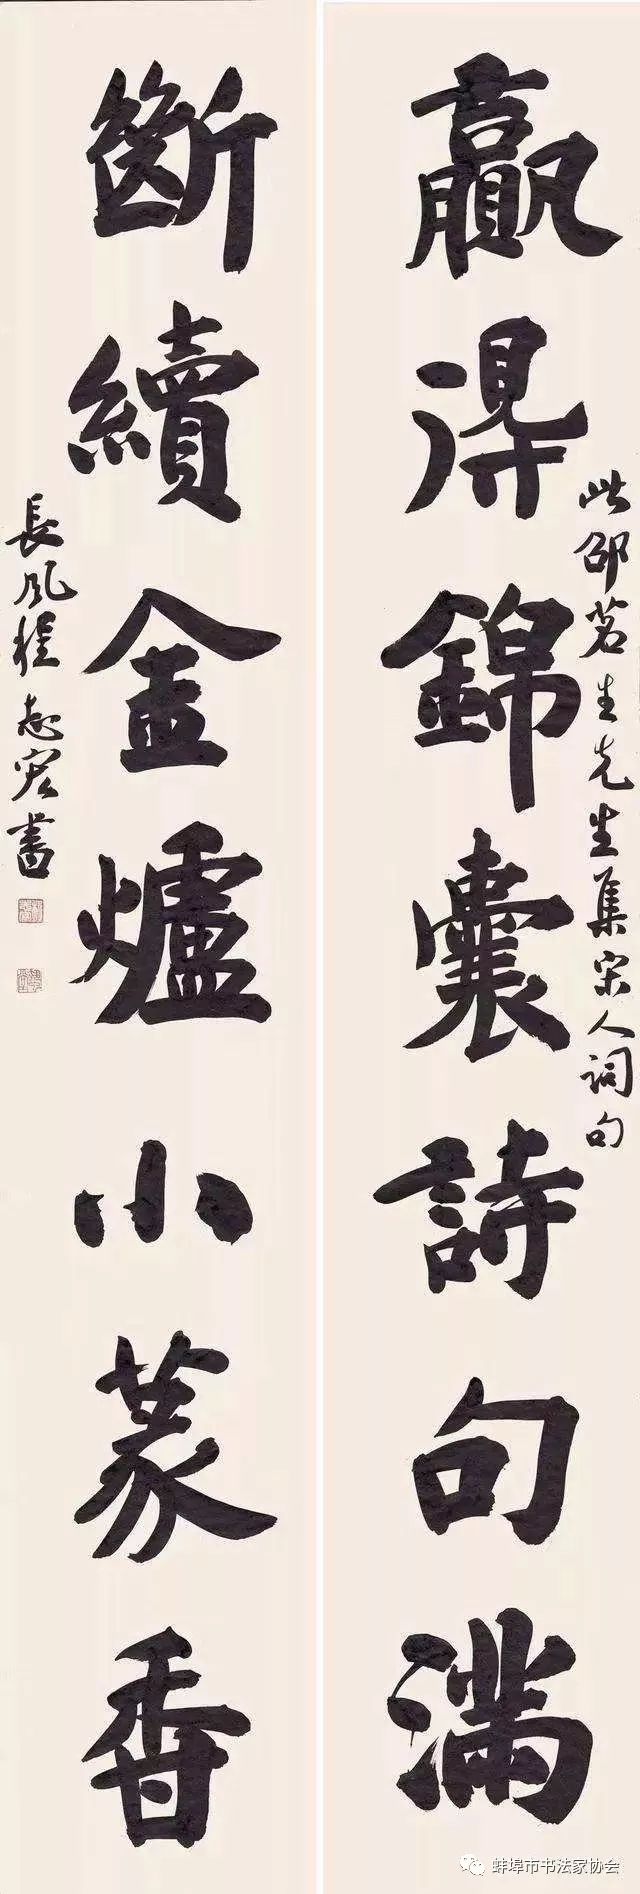 贏得錦囊詩句滿
此邵茗生先生集宋人詞句
斷續金爐小篆香
長風程志宏書
蚌埠市书法家协会